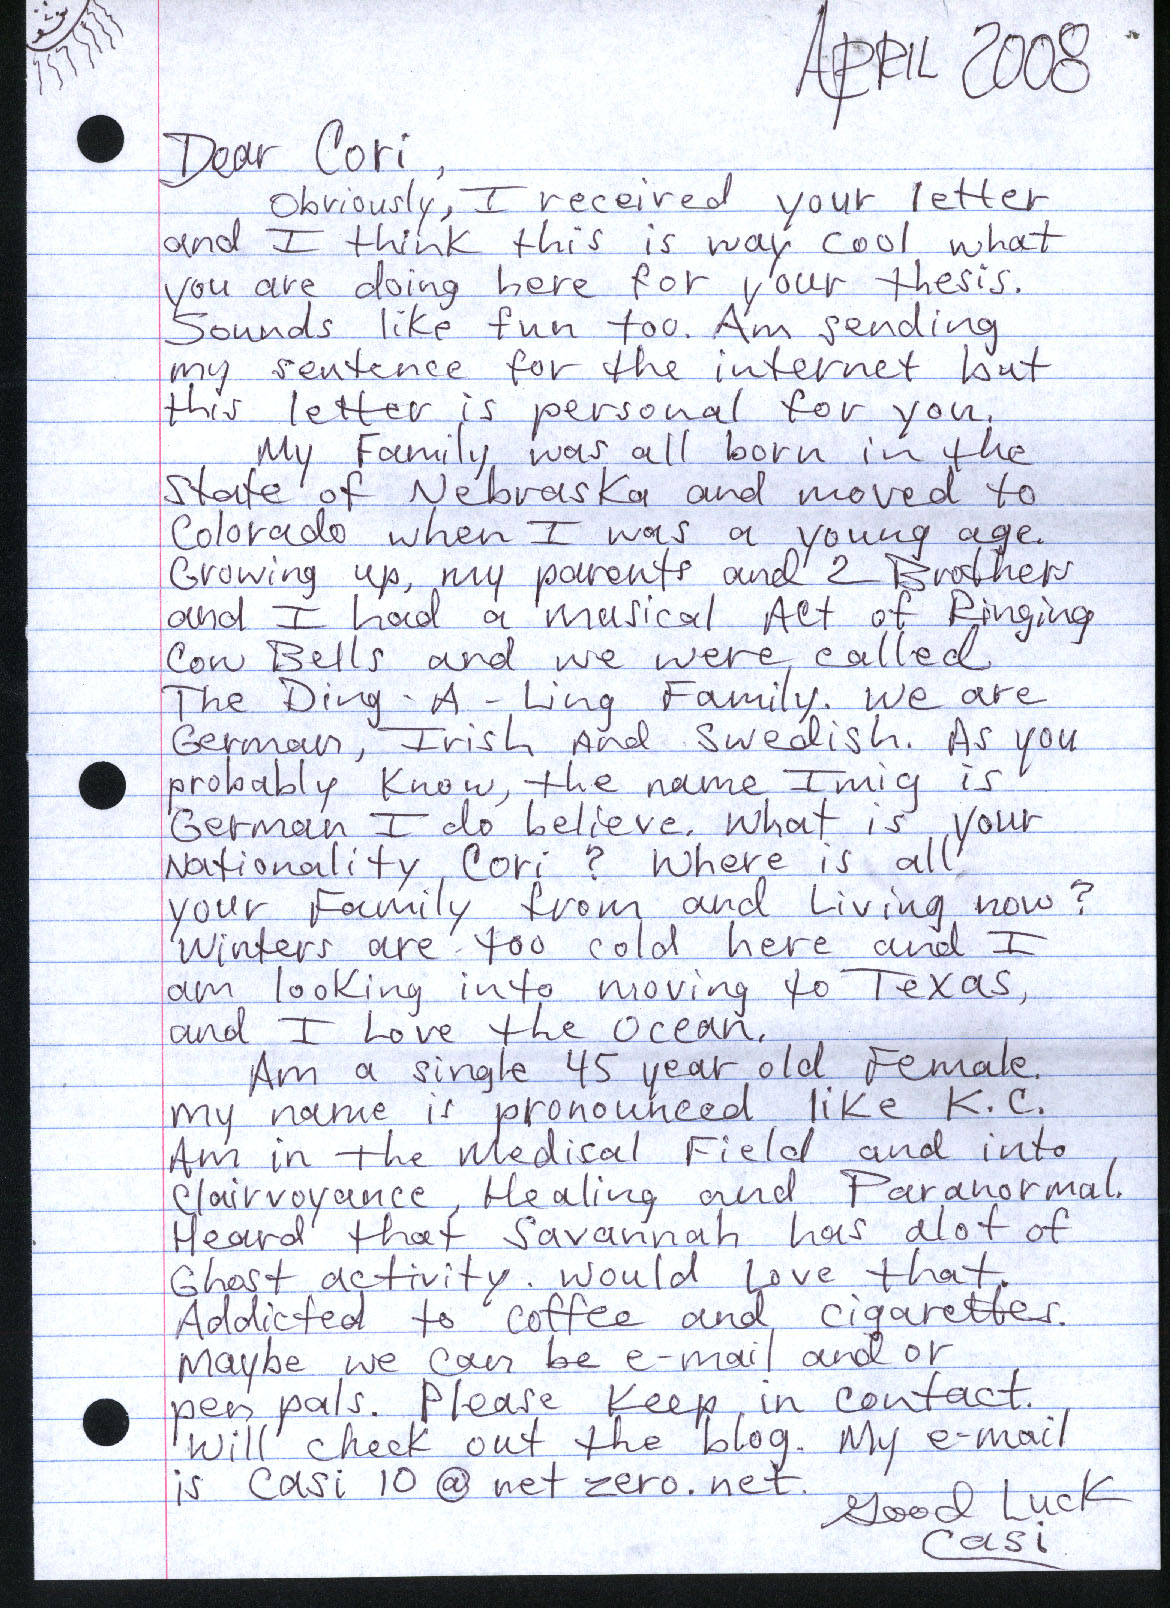 APRIL 2008
Dear Cori,
Obviously, I received your letter
and I think this is way cool what
you are doing here for your thesis.
Sounds like fun too. Am sending
my sentence for the internet but
this letter is personal for you.
My Family was all born in the
State of Nebraska and moved to
Colorado when I was a young age.
Growing up, my parents and 2 Brothers
and I had a musical Act of Ringing
Cow Bells and we were called
The Ding-A-Ling Family. We are
German, Irish And Swedish. As you
probably know, the name Imig is
German I do believe. What is your
Nationality Cori? Where is all
your Family from and Living now?
Winters are too cold here and I
am looking into moving to Texas,
and I Love the Ocean.
Am a single 45 year old Female.
My name is pronounced like K.C.
Am in the Medical Field and into
Clairvoyance, Healing and Paranormal.
Heard that Savannah has alot of
Ghost activity. Would Love that.
Addicted to coffee and cigarettes.
Maybe we can be e-mail and or
pen pals. Please Keep in contact.
Will check out the blog. My e-mail
is Casi10@netzero.net.
Good Luck
Casi